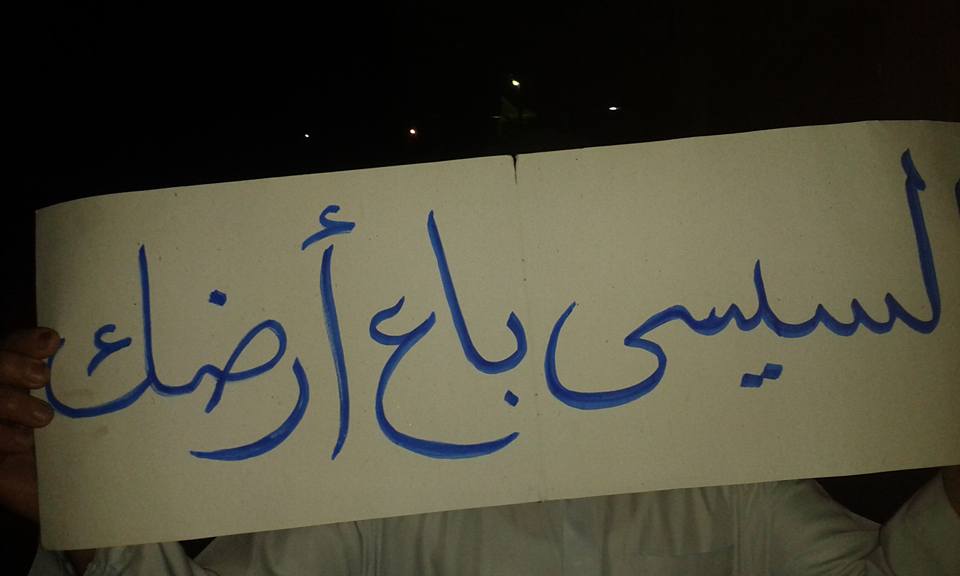 السيسى باع أرضك